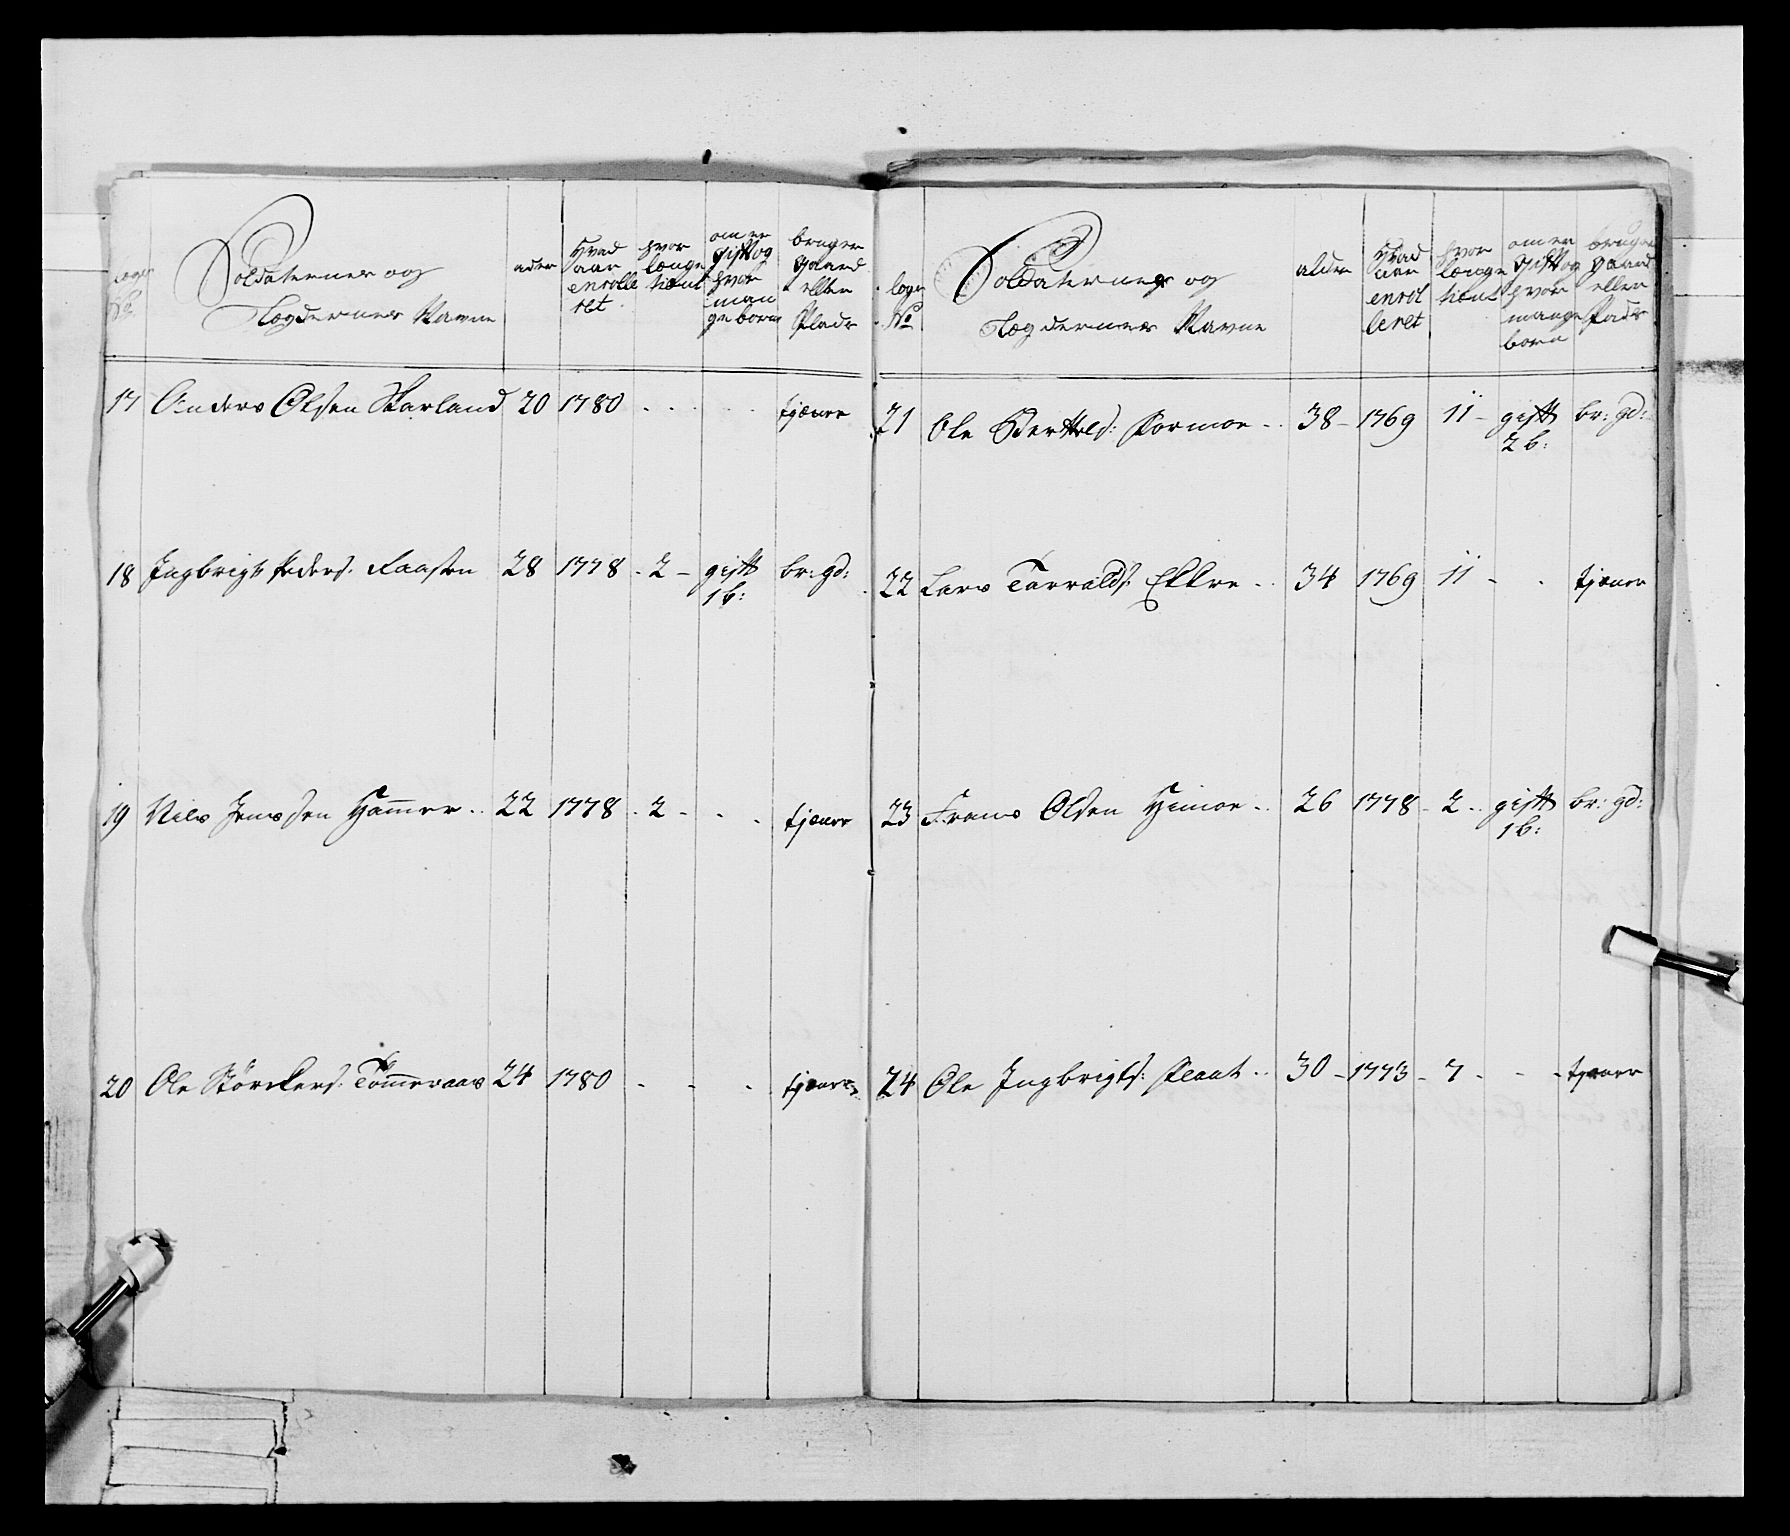 Lægs No
Soldaternes og
Lægdernes Navne
alder
Hvad
aar
enrolle
ret
hvor
længe
tient
om er
gift og
hvor
man
ge born
bruger
gaard
eller
Plads
17 Anders Olsen Skarland 20 1780 . . . . tjæner
18 Ingbrigt Peders: Faasten 28 1778 . 2 - gift br: gd:
1 b:
19 Nils Jenssen Hammer .. 22 1778 . 2 - . . tjæner
20 Ole Störckers: Tømmeraas 24 1780 - - . tjæner
Lægs
No
Soldaternes og
Lægdernes Navne
alder
Hvad
aar
enrol
leret
hvor
længe
tient
om er
gift og
hvor
mange
born
bruger
gaard
eller
Plads
21 Ole Berthels: Formoe - . 38 - 1769 11 - gift br: gd:
2 b:
22 Lars Tarralds: Ekkre - . 34 1769 11 - . tjæner
23 Frans Olsen Himoe - . 26 1778 - 2 .. gift br: gd:
1 b:
24 Ole Ingbrigts: Plaat .. 30 - 1773 - 7 - - - tjæner